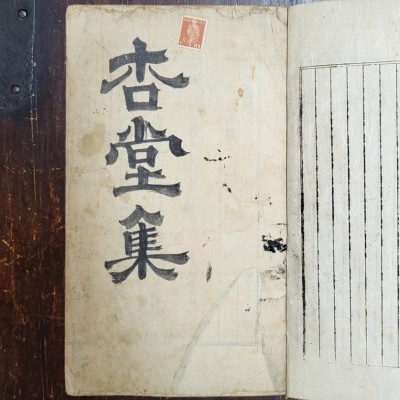 杏堂集